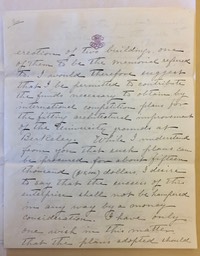 erection of two buildings, one
of them to be the memorial referred
to. I would therefore suggest
that I be permitted to contribute
the funds necessary to obtain by
international competition plans for
the fitting architectural improvement
of the University grounds at
Berkeley.
from you that such plans can
be procured for about fifteen
thousand dollars. I desire
to say that the success of this
enterprise shall not be hampered
in any way by a money
consideration. I have only
one wish in this matter,
that the plans adopted should